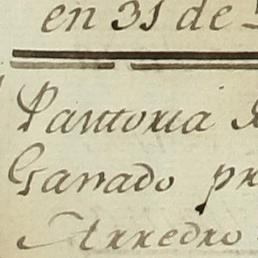 en 31 de
Panttoxia
Ganado pr
Arredro